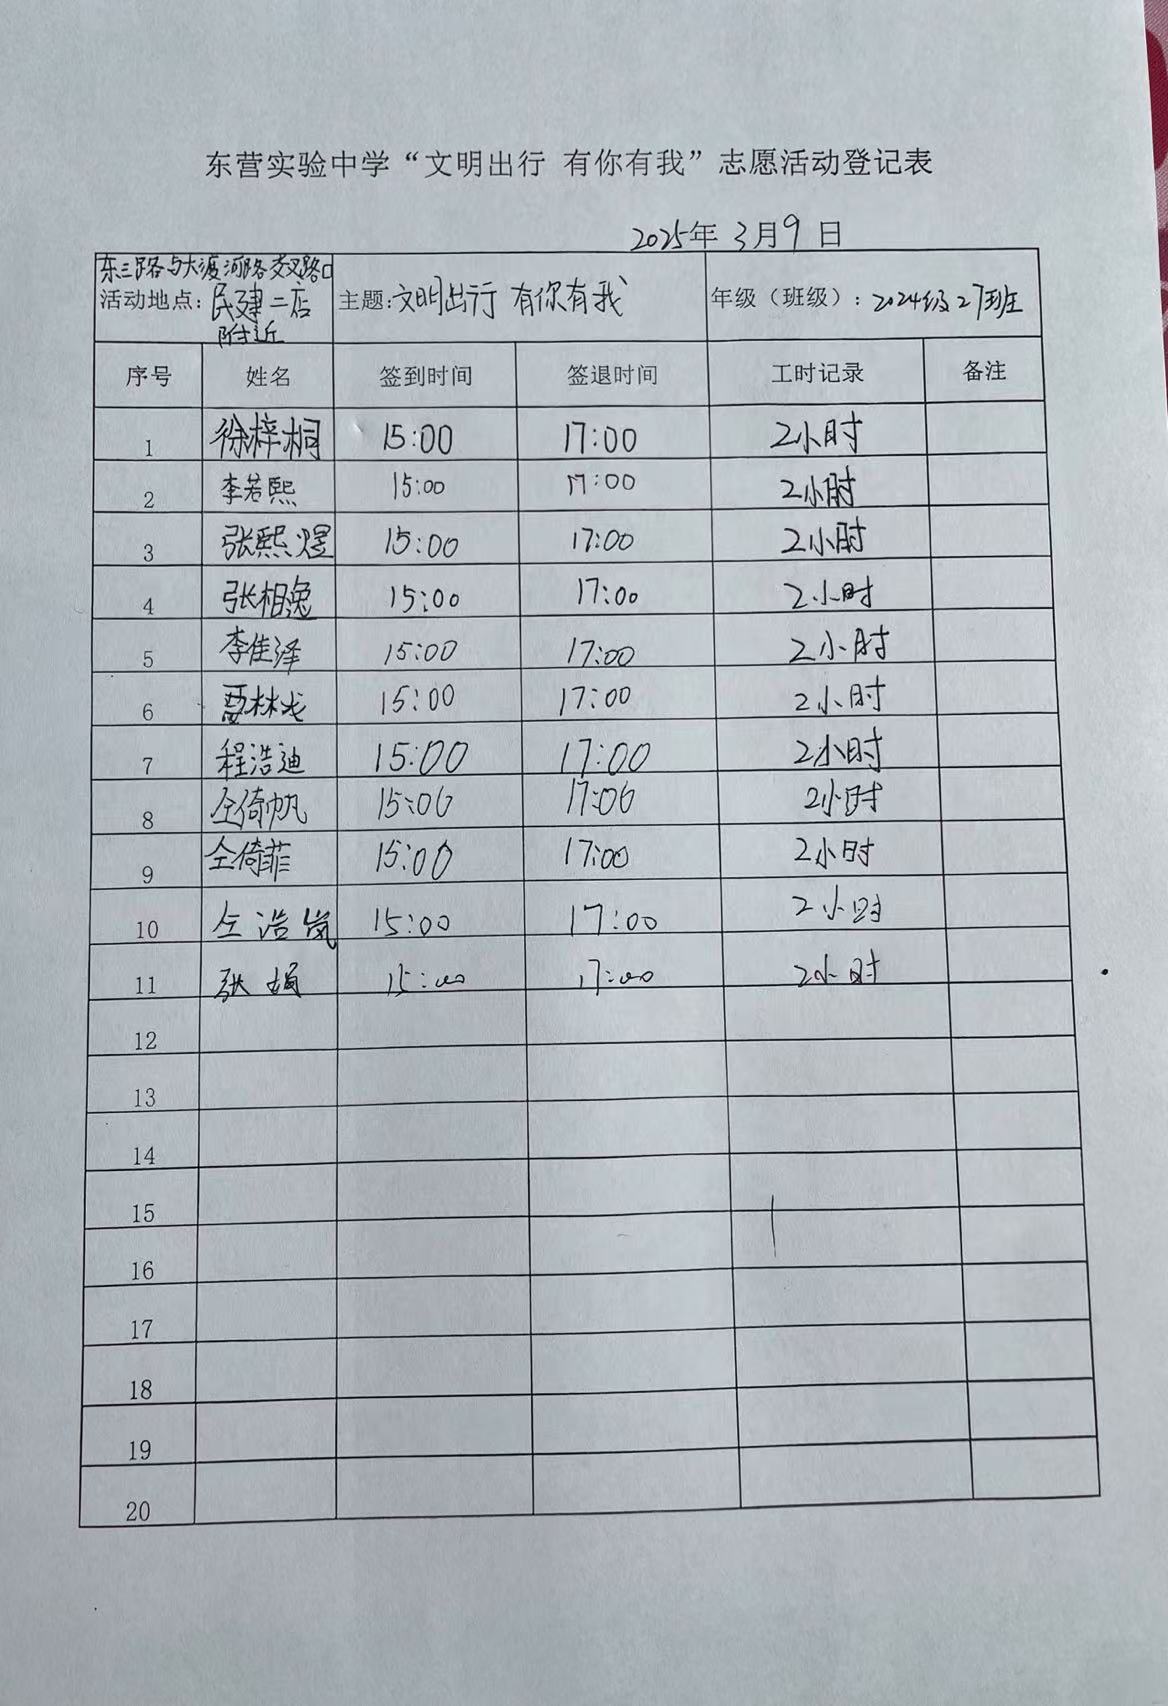 东营实验中学“文明出行 有你有我”志愿活动登记表
2025年 3月9日
东三路与大渡河路交叉路口
活动地点：民建二店附近 主题：文明出行 有你有我 年级（班级）：2024级27班
序号 姓名 签到时间 签退时间 工时记录 备注
1 徐梓桐 15:00 17:00 2小时
2 李若熙 15:00 17:00 2小时
3 张熙煜 15:00 17:00 2小时
4 张相逸 15:00 17:00 2小时
5 李佳泽 15:00 17:00 2小时
6 15:00 17:00 2小时
7 程浩迪 15:00 17:00 2小时
8 仝倚帆 15:00 17:00 2小时
9 仝倚菲 15:00 17:00 2小时
10 仝浩岚 15:00 17:00 2小时
11 张娟 15:00 17:00 2小时
12
13
14
15
16
17
18
19
20